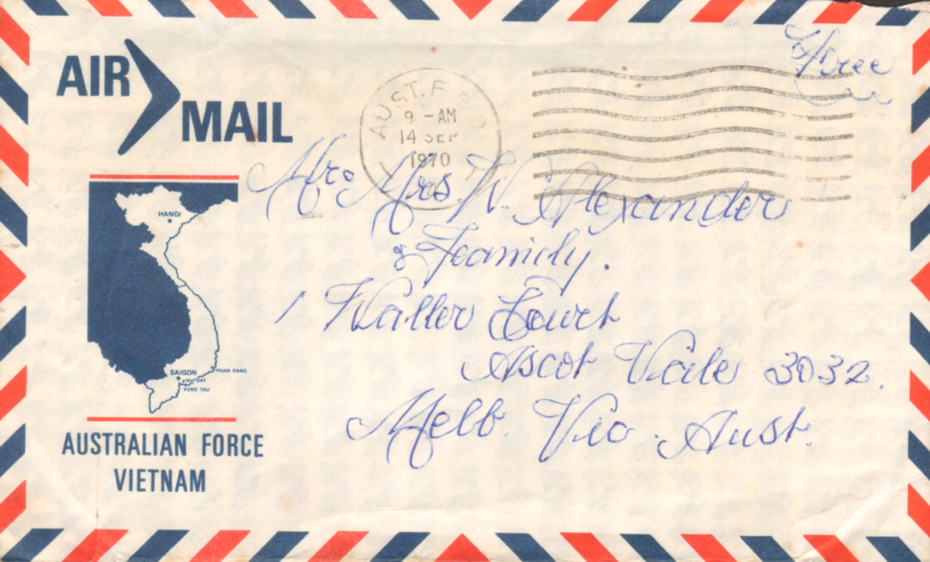 AIR
MAIL
Free
AUST. F.P.O
9 - AM
14 SEP
1970
HANOI
SAIGON
PHAN RANG
NUI DAT
VUNG TAU
AUSTRALIAN FORCE
VIETNAM
Mr & Mrs. W. Alexander
& Family.
1 Waller Court
Ascot Vale 3032.
Melb. Vic. Aust.